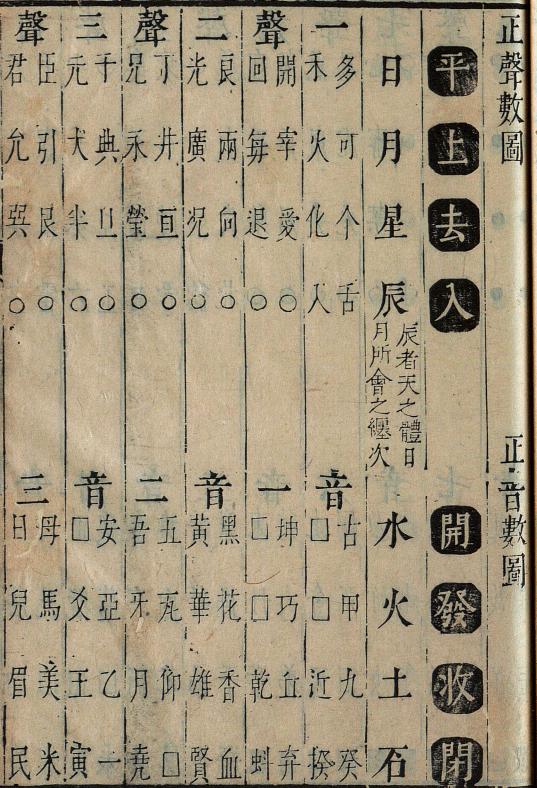 正聲數圖
正音數圖
平上去入
開發收閉
日月星辰
辰者天之體日
月所會之纏次
水火土石
一
多可个舌
禾火化
音
古甲九癸
□□近揆
聲
開宰愛○
回每退○
一
坤巧丘弃
□□乾蚪
二
良兩向○
光廣况○
音
黑花香血
黃華雄賢
聲
丁井亘○
兄永瑩○
二
五瓦仰□
吾牙月堯
三
千典旦○
元犬半○
音
安亞乙一
□爻王寅
聲
臣引艮○
君允巽○
三
母馬美米
日兒眉民